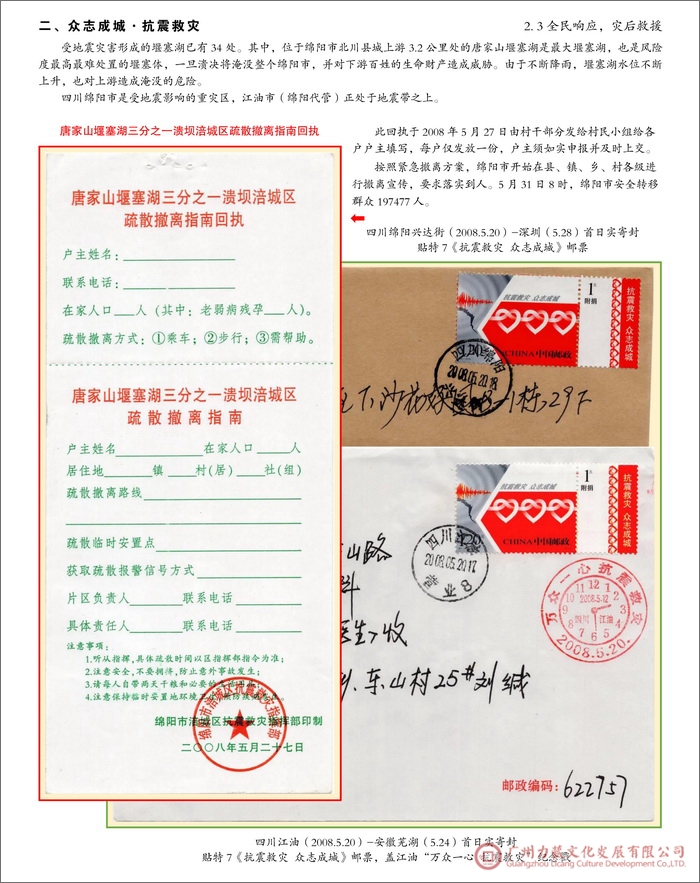 二、众志成城·抗震救灾
2.3 全民响应，灾后救援
受地震灾害形成的堰塞湖已有 34 处。其中，位于绵阳市北川县城上游 3.2 公里处的唐家山堰塞湖是最大堰塞湖，也是风险
度最高最难处置的堰塞体，一旦溃决将淹没整个绵阳市，并对下游百姓的生命财产造成威胁。由于不断降雨，堰塞湖水位不断
上升，也对上游造成淹没的危险。
四川绵阳市是受地震影响的重灾区，江油市（绵阳代管）正处于地震带之上。
唐家山堰塞湖三分之一溃坝涪城区疏散撤离指南回执
此回执于 2008 年 5 月 27 日由村干部分发给村民小组给各
户户主填写，每户仅发放一份，户主须如实申报并及时上交。
按照紧急撤离方案，绵阳市开始在县、镇、乡、村各级进
行撤离宣传，要求落实到人。5 月 31 日 8 时，绵阳市安全转移
群众 197477 人。
四川绵阳兴达街（2008.5.20）-深圳（5.28）首日实寄封
贴特 7《抗震救灾 众志成城》邮票
唐家山堰塞湖三分之一溃坝涪城区
疏散撤离指南回执
户主姓名：
联系电话：
在家人口___人（其中：老弱病残孕___人）。
疏散撤离方式：①乘车；②步行；③需帮助。
唐家山堰塞湖三分之一溃坝涪城区
疏散撤离指南
户主姓名________在家人口____人
居住地____镇____村(居)____社(组)
疏散撤离路线
疏散临时安置点
获取疏散报警信号方式
片区负责人______联系电话
具体责任人______联系电话
注意事项：
1.听从指挥,具体疏散时间以区指挥部指令为准；
2.注意安全,不要拥挤,防止意外事故发生；
3.请每人自带两天干粮和必要的
4.注意保持临时安置地环境卫
绵阳市涪城区抗震救灾指挥部印制
二〇〇八年五月二十七日
绵阳市涪城区抗震救灾指挥部
抗震救灾 众志成城
1元
附捐
CHINA 中国邮政
抗震救灾 众志成城
四川绵阳
2008.05.20.18
下沙
8-1栋,29下
抗震救灾 众志成城
1元
附捐
CHINA 中国邮政
抗震救灾 众志成城
四川
2008.05.20.17
8
山路
医生 收
东山村25#刘缄
万众一心抗震救灾
2008.5.12
四川 江油
12 1 2 3 4 5 6 7 8 9 10 11
2008.5.20.
邮政编码：622757
四川江油（2008.5.20）-安徽芜湖（5.24）首日实寄封
贴特 7《抗震救灾 众志成城》邮票，盖江油“万众一心 抗震救灾”纪念戳
广州力藏文化发展有限公司
Guangzhou Licang Culture Development Co., Ltd